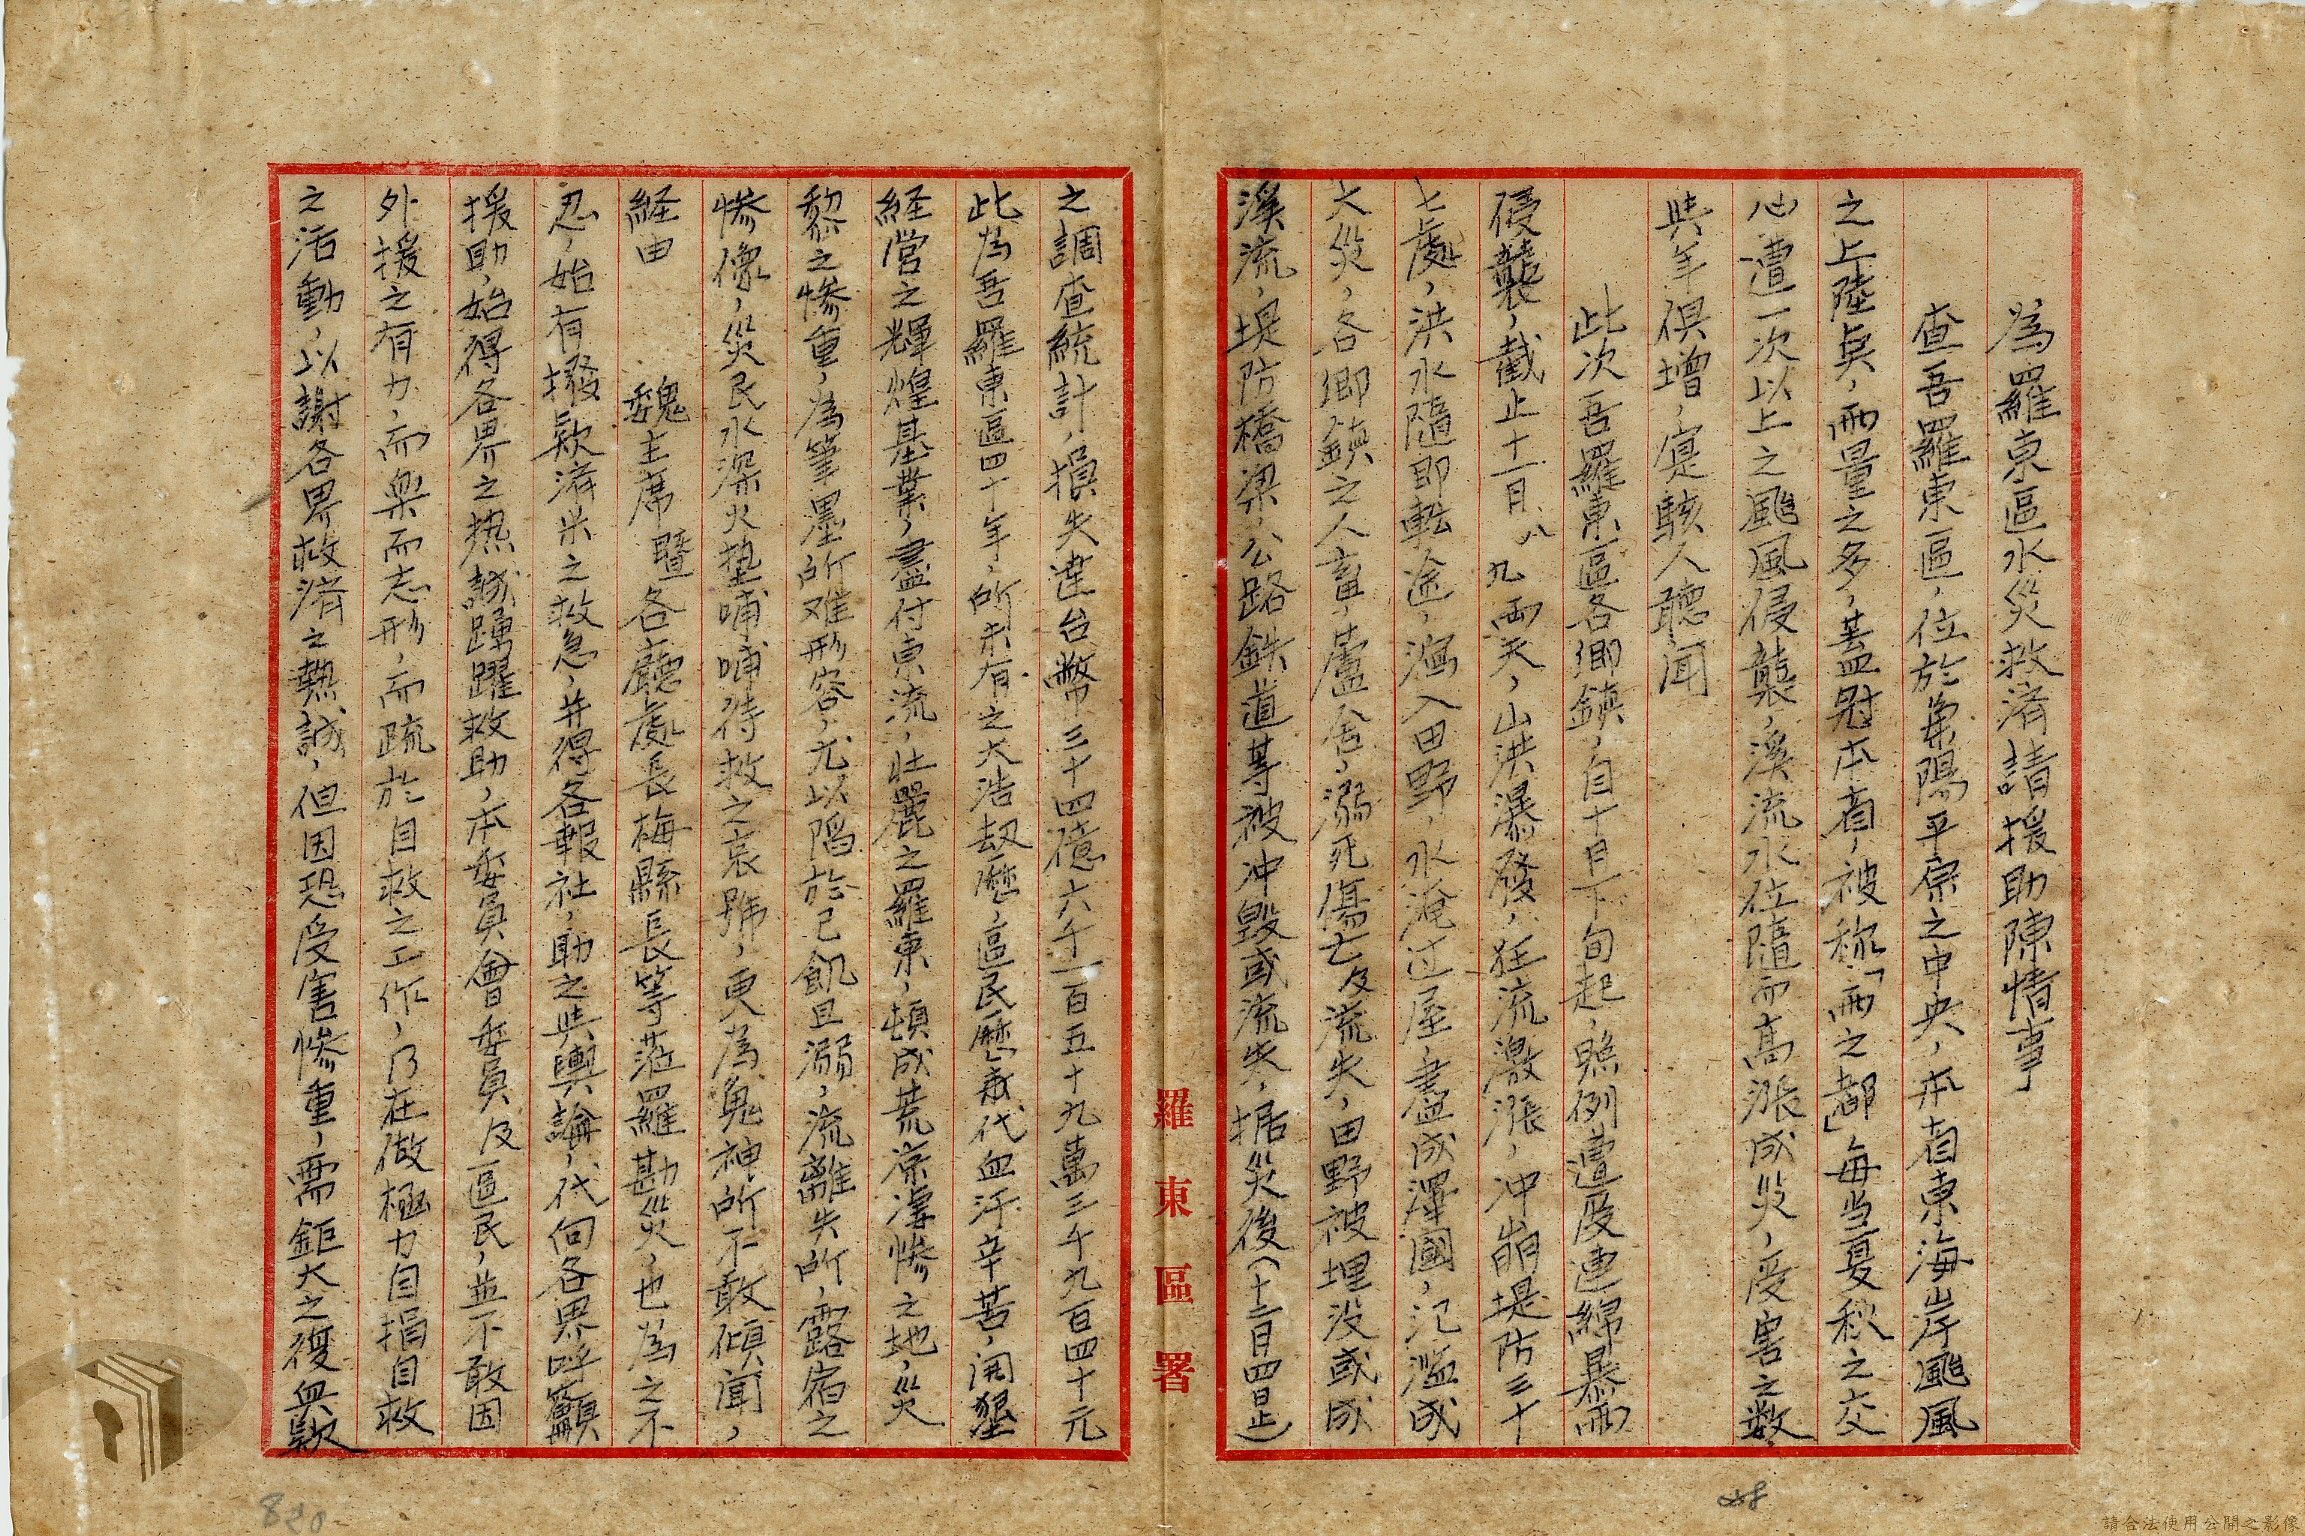 為羅東區水災救済請援助陳情事
查吾羅東區，位於蘭陽平原之中央，本省東海岸颱風
之上陸点，雨量之多，蓋冠本省，被称「雨之都」每当夏秋之交
必遭一次以上之颱風侵襲，溪流水位隨而高漲成災，受害之数
與年俱增，寔駭人聽聞
此次吾羅東區各鄉鎮，自十月下旬起，照例遭受連綿暴雨
侵襲，截止十一月八九両天，山洪瀑發，狂流激漲，冲崩堤防三十
七處，洪水隨即転途，瀉入田野，水淹过屋，盡成澤國，氾濫成
大災，各鄉鎮之人畜，蘆舍，溺死傷亡及流失，田野被埋没或成
溪流，堤防橋梁，公路鉄道等被冲毁或流失，据災後（十二月四日止）
之調查統計，損失達台幣三十四億六千一百五十九萬三千九百四十元
此為吾羅東區四十年，所未有之大浩劫歷，區民歷代血汗辛苦，開墾
経営之輝煌基業，盡付東流，壯麗之羅東，頓成荒凉凄慘之地，災
黎之慘重，為筆墨所难形容，尤以陷於已飢且溺，流離失所，露宿之
慘像，災民水深火墊哺哺待救之哀號，更為鬼神所不敢傾聞，
経由　魏主席　暨各廳處長梅縣長等蒞羅勘災，也為之不
忍，始有撥款済米之救急，并得各報社，助之與輿論，代向各界呼籲
援助，始得各界之热誠踴躍救助，本委員會委員及區民，並不敢因
外援之有力，而樂而志形，而疏於自救之工作，乃在做極力自捐自救
之活動，以謝各界救済之熱誠，但因恐受害慘重，需鉅大之復興款
羅東區署
820
請合法使用公開之影像